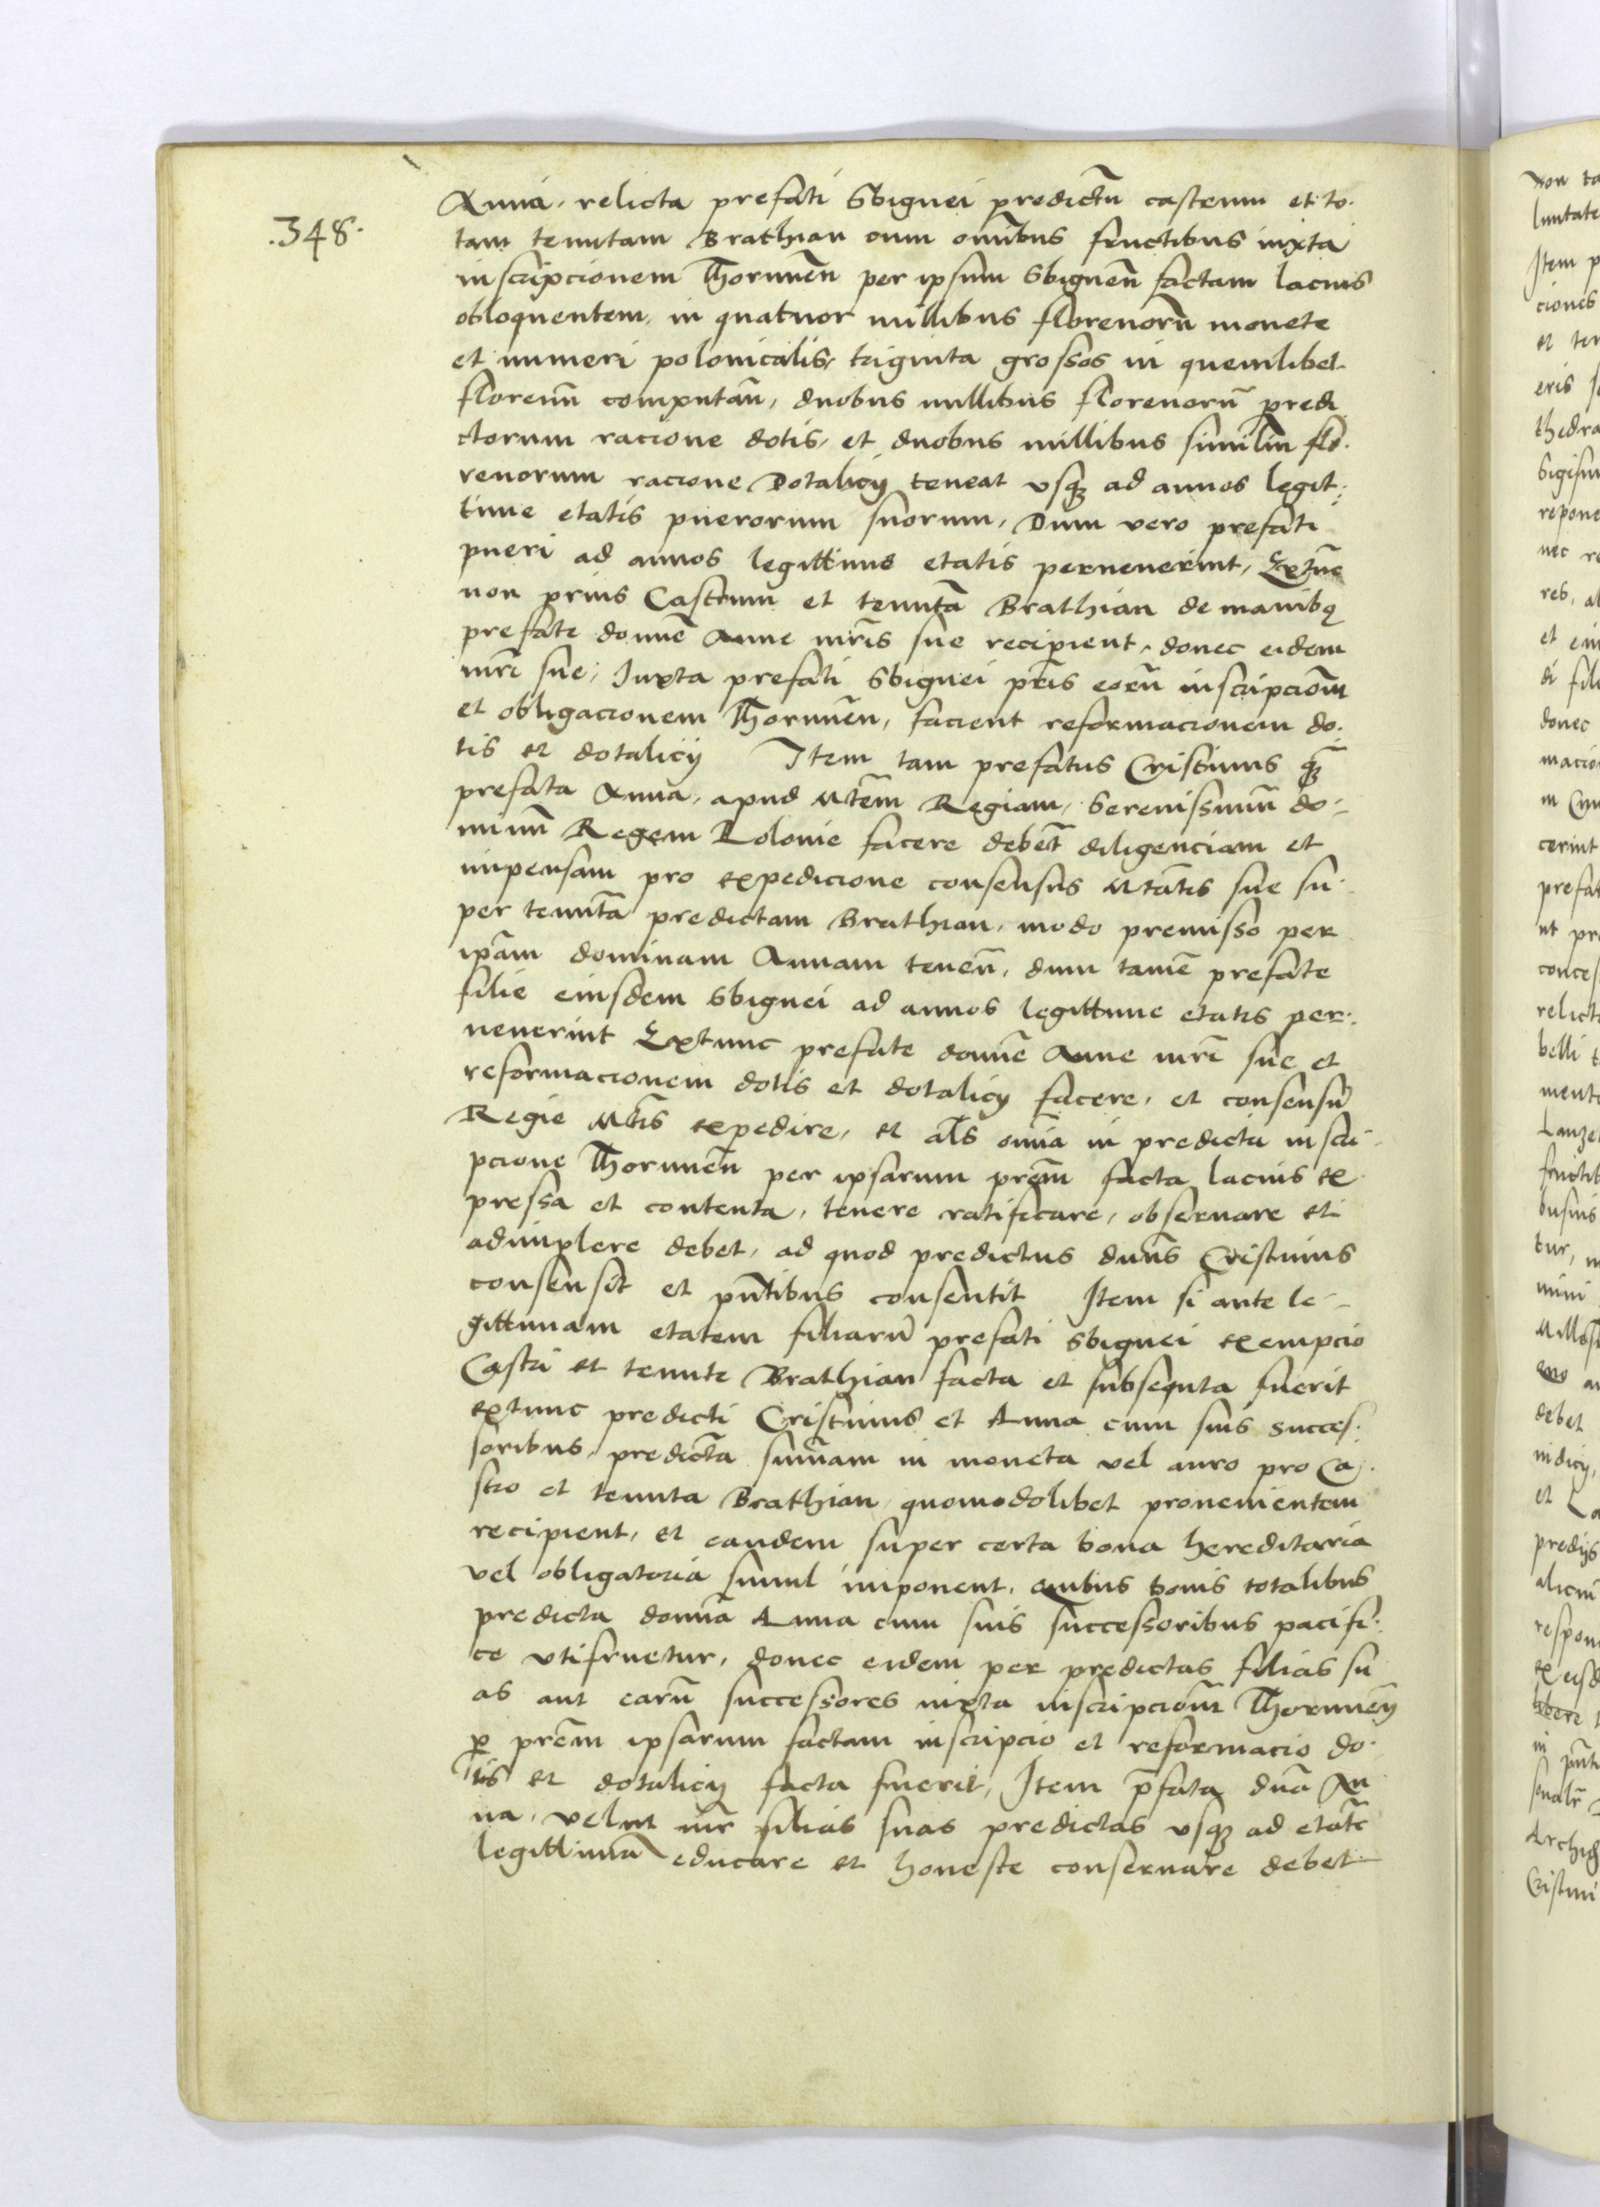 .348.
Anna, relicta prefati Sbignei predictũ castrum et to.
tam tenutam Brathian cum omĩbus fructibus iuxta
inscripcionem Thorunẽn per ipsum Sbignẽu factam lacius
obloquentem, in quatuor millibus florenorũ monete
et numeri polonicalis, triginta grossos in quemlibet
florenũ computañ, duobus millibus florenorũ predi
ctorum racione dotis, et duobus millibus similiũ flo.
renorum racione Dotalicij teneat vsqꝫ ad annos legit:
time etatis puerorum suorum, Dum vero prefati
pueri ad annos legittimos etatis peruenerint, Extũc
non prius Castrum et tenutã Brathian de manibꝗ
prefate domiẽ Anne mr̃is sue recipient, donec eidem
mr̃i sue, Iuxta prefati Sbignei pr̃is eorũ inscripcioñm
et obligacionem Thorunẽn, facient reformacionem do.
tis et dotalicij Item tam prefatus Cristinus qꝫ̃
prefata Anna, apud Mt̃em Regiam, Serenissimũ do-
minũ Regem Polonie facere debẽt diligenciam et
impensam pro expedicione consensus Mtãtis sue su-
per tenutã predictam Brathian, modo premisso per
ipãm dominam Annam teneñ, dum tamẽ prefate
filie eiusdem Sbignei ad annos legittime etatis per:
uenerint Extunc prefate domiẽ Anne mr̃i sue et
reformacionem dotis et dotalicij facere, et consensũ
Regie Mt̃is expedire, et als̃ omĩa in predicta inscri-
pcione Thorunẽn per ipsarum prẽm facta lacius ex
pressa et contenta, tenere ratificare, obseruare et
adimplere debet, ad quod predictus dnũs Cristinus
consensit et pñtibus consentit Item si ante le-
gittimam etatem filiarũ prefati Sbignei exempcio
Castri et tenute Brathian facta et subsequta fuerit
extunc predicti Cristinus et Anna cum suis succes:
soribus, predictã sum̃am in moneta vel auro pro Ca.
stro et tenuta Brathian quomodolibet prouenientem
recipient, et eandem super certa bona hereditaria
vel obligatoria simul imponent, quibus bonis totalibus
predicta domiã Anna cum suis successoribus pacifi.
ce vtifruetur, donec eidem per predictas filias su
as aut earũ successores iuxta inscripcioñm Thorunẽn
ꝑ prẽm ipsarum factam inscripcio et reformacio do.
tis et dotalicij facta fuerit, Item p̃fata dnã An
na, velut mr̃ filias suas predictas vsqꝫ ad etatẽ
legittimã educare et honeste conseruare debet